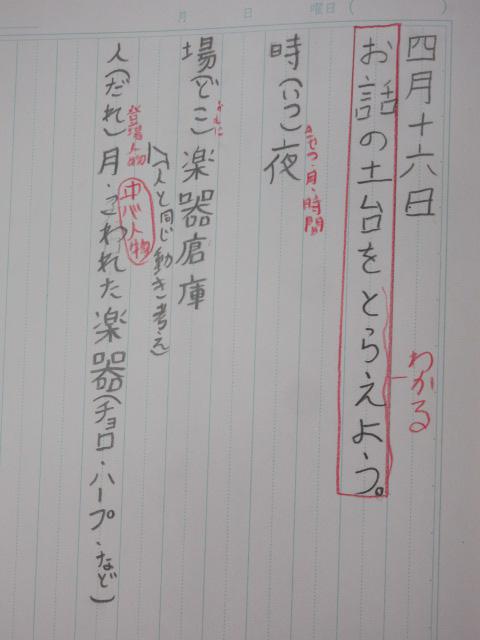 月 日 曜日（ ）
四月十六日
お話の土台をとらえよう。
わかる
時（いつ）夜
きせつ・月・時間
場（どこ）楽器倉庫
（人と同じ動き）考え
人（だれ）月・こわれた楽器（チョロ・ハープ・など）
登場人物
中心人物